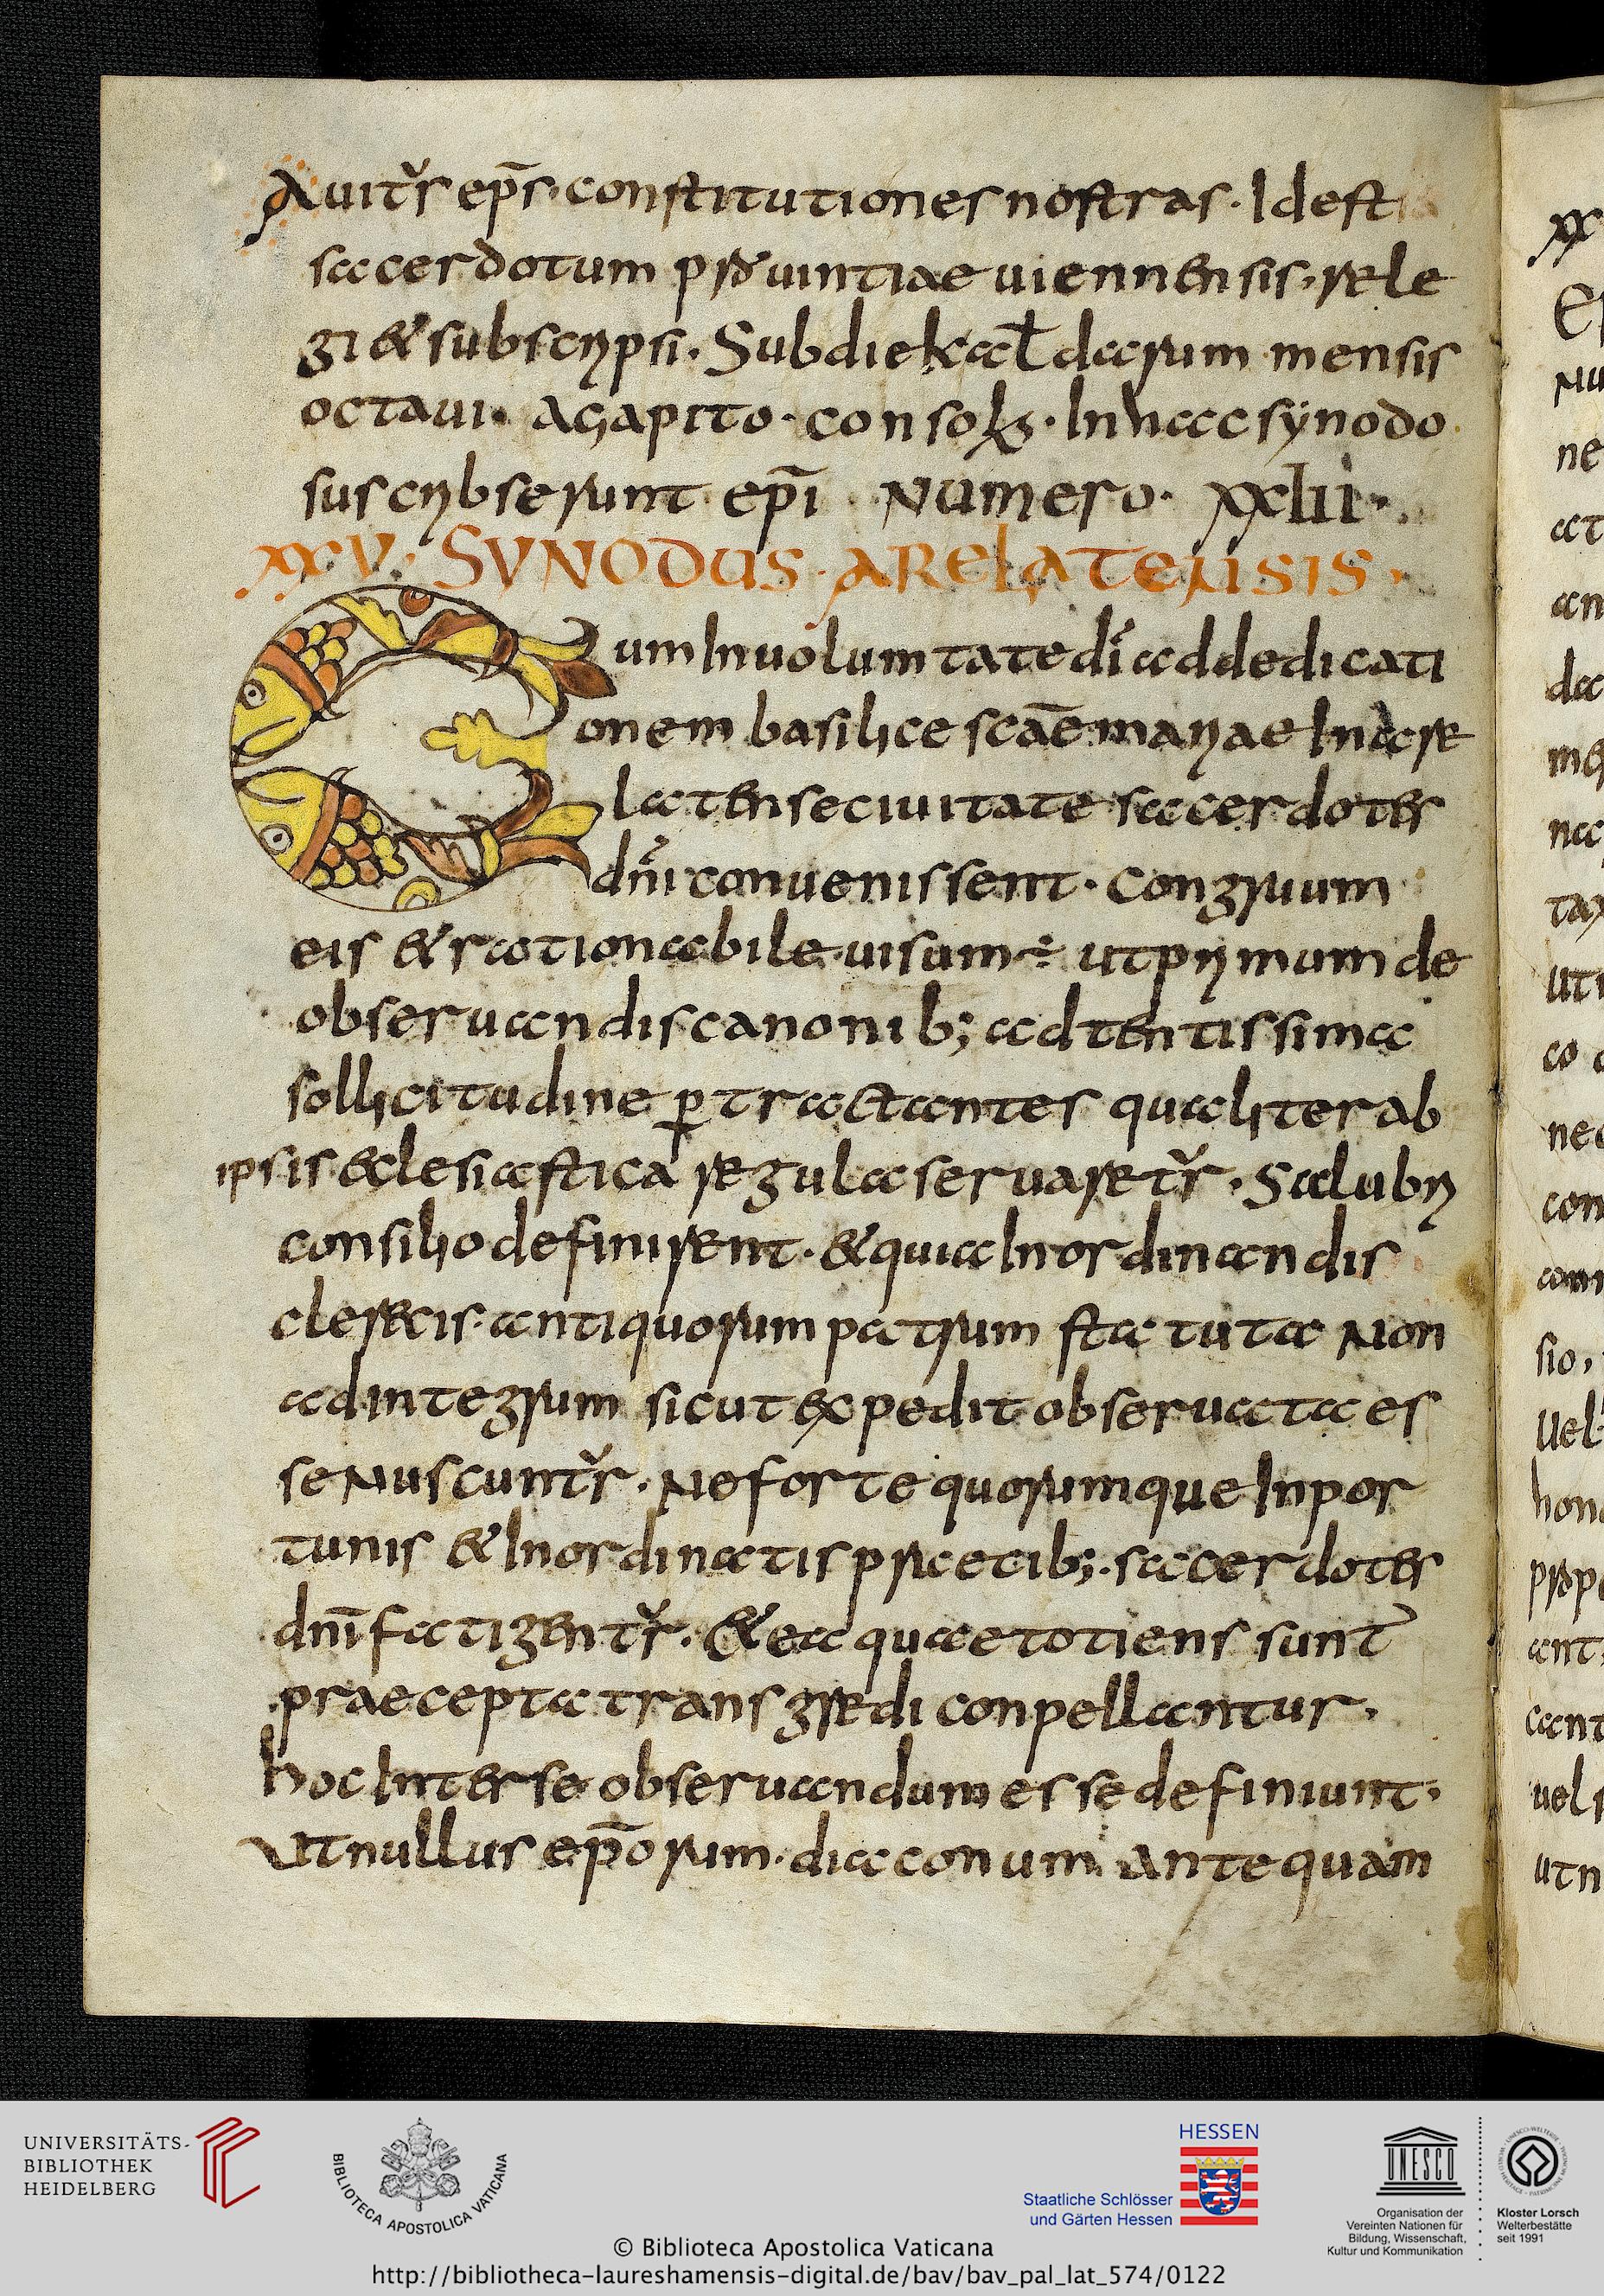 Auitr̄s ep̄s · constitutiones nostras · Idest
sacerdotum prouintiae uiennensis · rele
gi & subscripsi · Subdie kal̄darum mensis
octaui · Agapito · consolis · In hac synodo
suscribserunt ep̄i Numero · xxiiii ·
XXV · SYNODUS · ARELATENSIS ·
Cum In uoluntate dī ad dedicati
onem basilice sc̄ae mariae In are
latense ciuitate sacerdotes
dn̄i conuenissent · Congruum
eis & rationabile uisum ÷ ut primum de
obseruandis canonib; adtentissima
sollicitudine p̱tractantes qualiter ab
ipsis ecclesiastica regula seruaretr̄ · Salubri
consilio definirent · & quia In ordinandis
clerecis · antiquorum patrum statuta Non
ad integrum sicut expedit obseruata es
se Nuscuntr̄ · Ne forte quorumque Inpor
tunis & Inordinatis praecib; · sacerdotes
dn̄i fatigentr̄ · & ea quae totiens sunt
praecepta transgredi conpellantur ·
hoc Inter se obseruandum esse definiunt ·
Ut nullus ep̄orum · diaconum antequam
xx
Nu
ne
at
an
da
na
uti
co
ne
con
sio,
uel
hon
prop
ant
cant
uel s
utn
UNIVERSITÄTS-
BIBLIOTHEK
HEIDELBERG
BIBLIOTECA APOSTOLICA VATICANA
HESSEN
Staatliche Schlösser
und Gärten Hessen
UNESCO
Organisation der
Vereinten Nationen für
Bildung, Wissenschaft,
Kultur und Kommunikation
Kloster Lorsch
Welterbestätte
seit 1991
© Biblioteca Apostolica Vaticana
http://bibliotheca-laureshamensis-digital.de/bav/bav_pal_lat_574/0122